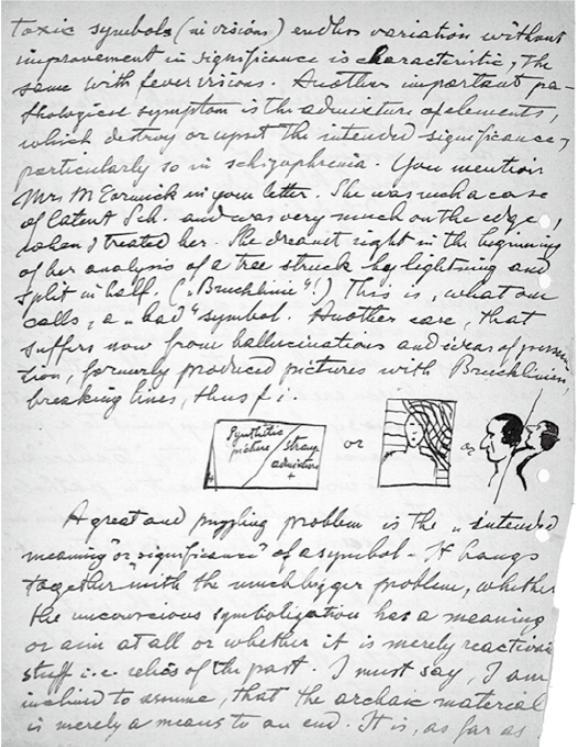 toxic symbols (in visions) endless variation without
improvement in significance is characteristic, the
same with fever visions. Another important pa-
thological symptom is the admixture of elements,
which destroy or upset the intended significance,
particularly so in schizophrenia. You mention
Mrs McCormick in your letter. She was such a case
of latent Sch. and was very much on the edge,
when I treated her. She dreamt right in the beginning
of her analysis of a tree struck by lightning and
split in half. („Bruchlinie"!) This is, what one
calls, a „bad" symbol. Another case, that
suffers now from hallucinations and ideas of persecu-
tion, formerly produced pictures with Bruchlinien,
breaking lines, thus f.i.
Synthetic
picture / strange
admixture
+
or
or
A great and puzzling problem is the „intended
meaning" or significance" of a symbol - It hangs
together with the much bigger problem, whether
the unconscious symbolization has a meaning
or aim at all or whether it is merely reactive
stuff i.e. relics of the past. I must say, I am
inclined to assume, that the archaic material
is merely a means to an end. It is, as far as